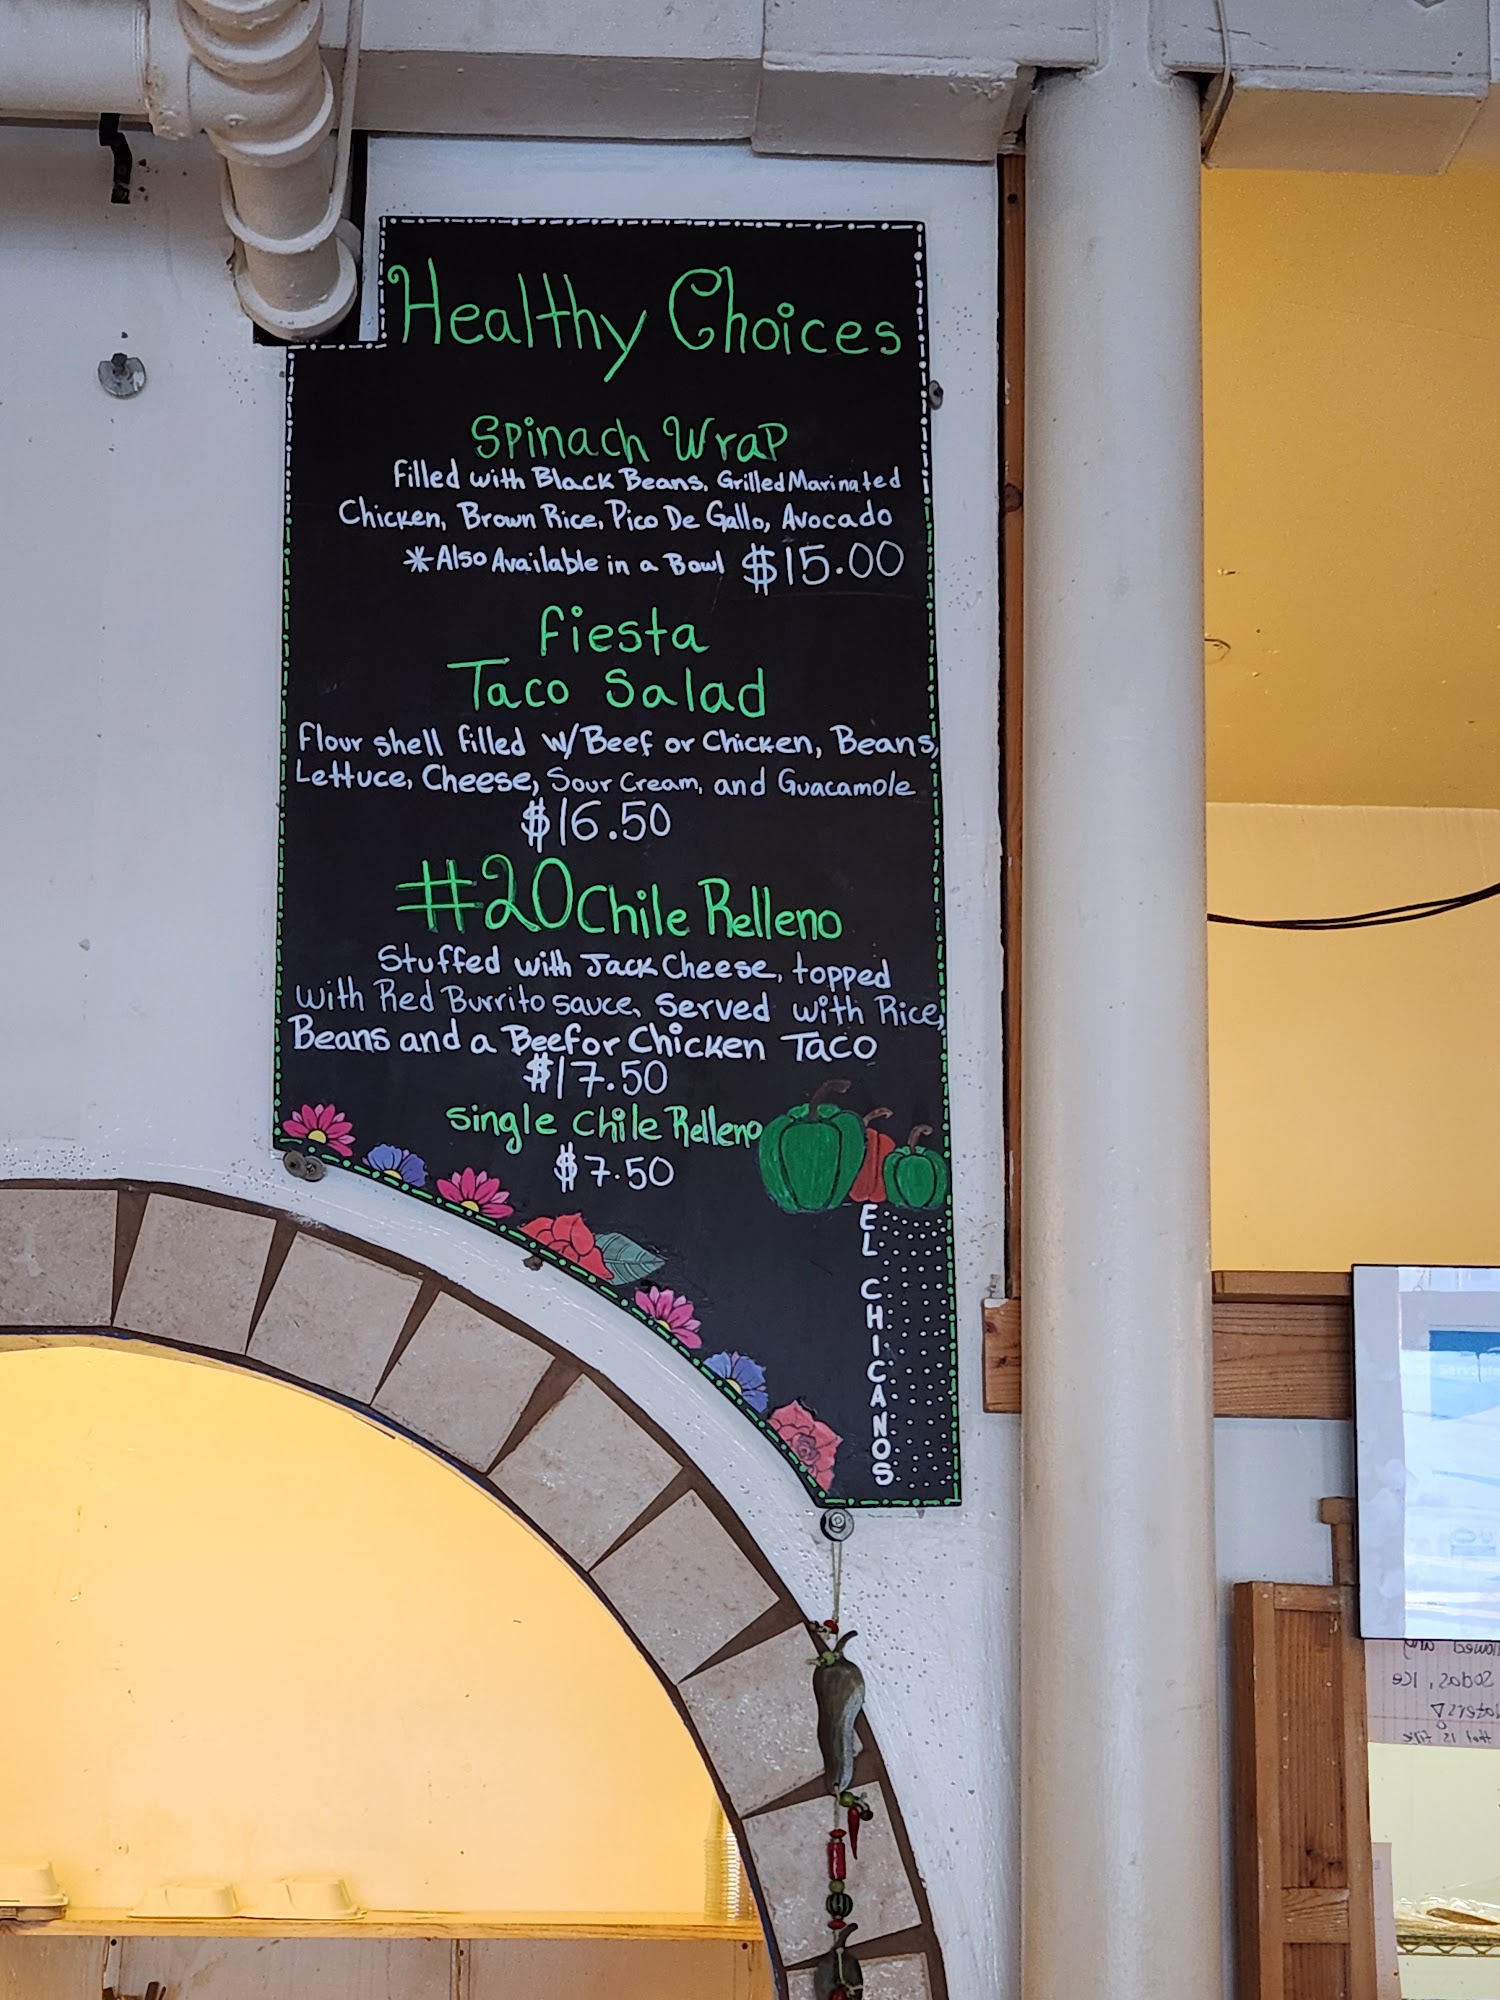 Healthy Choices
Spinach Wrap
filled with Black Beans, Grilled Marinated
Chicken, Brown Rice, Pico De Gallo, Avocado
*Also Available in a Bowl $15.00
fiesta
Taco Salad
flour shell filled w/Beef or Chicken, Beans,
Lettuce, Cheese, Sour Cream, and Guacamole
$16.50
#20 Chile Relleno
Stuffed with Jack Cheese, topped
with Red Burrito sauce, Served with Rice,
Beans and a Beef or Chicken Taco
$17.50
Single Chile Relleno
$7.50
EL CHICANOS
and
Sodas, Ice